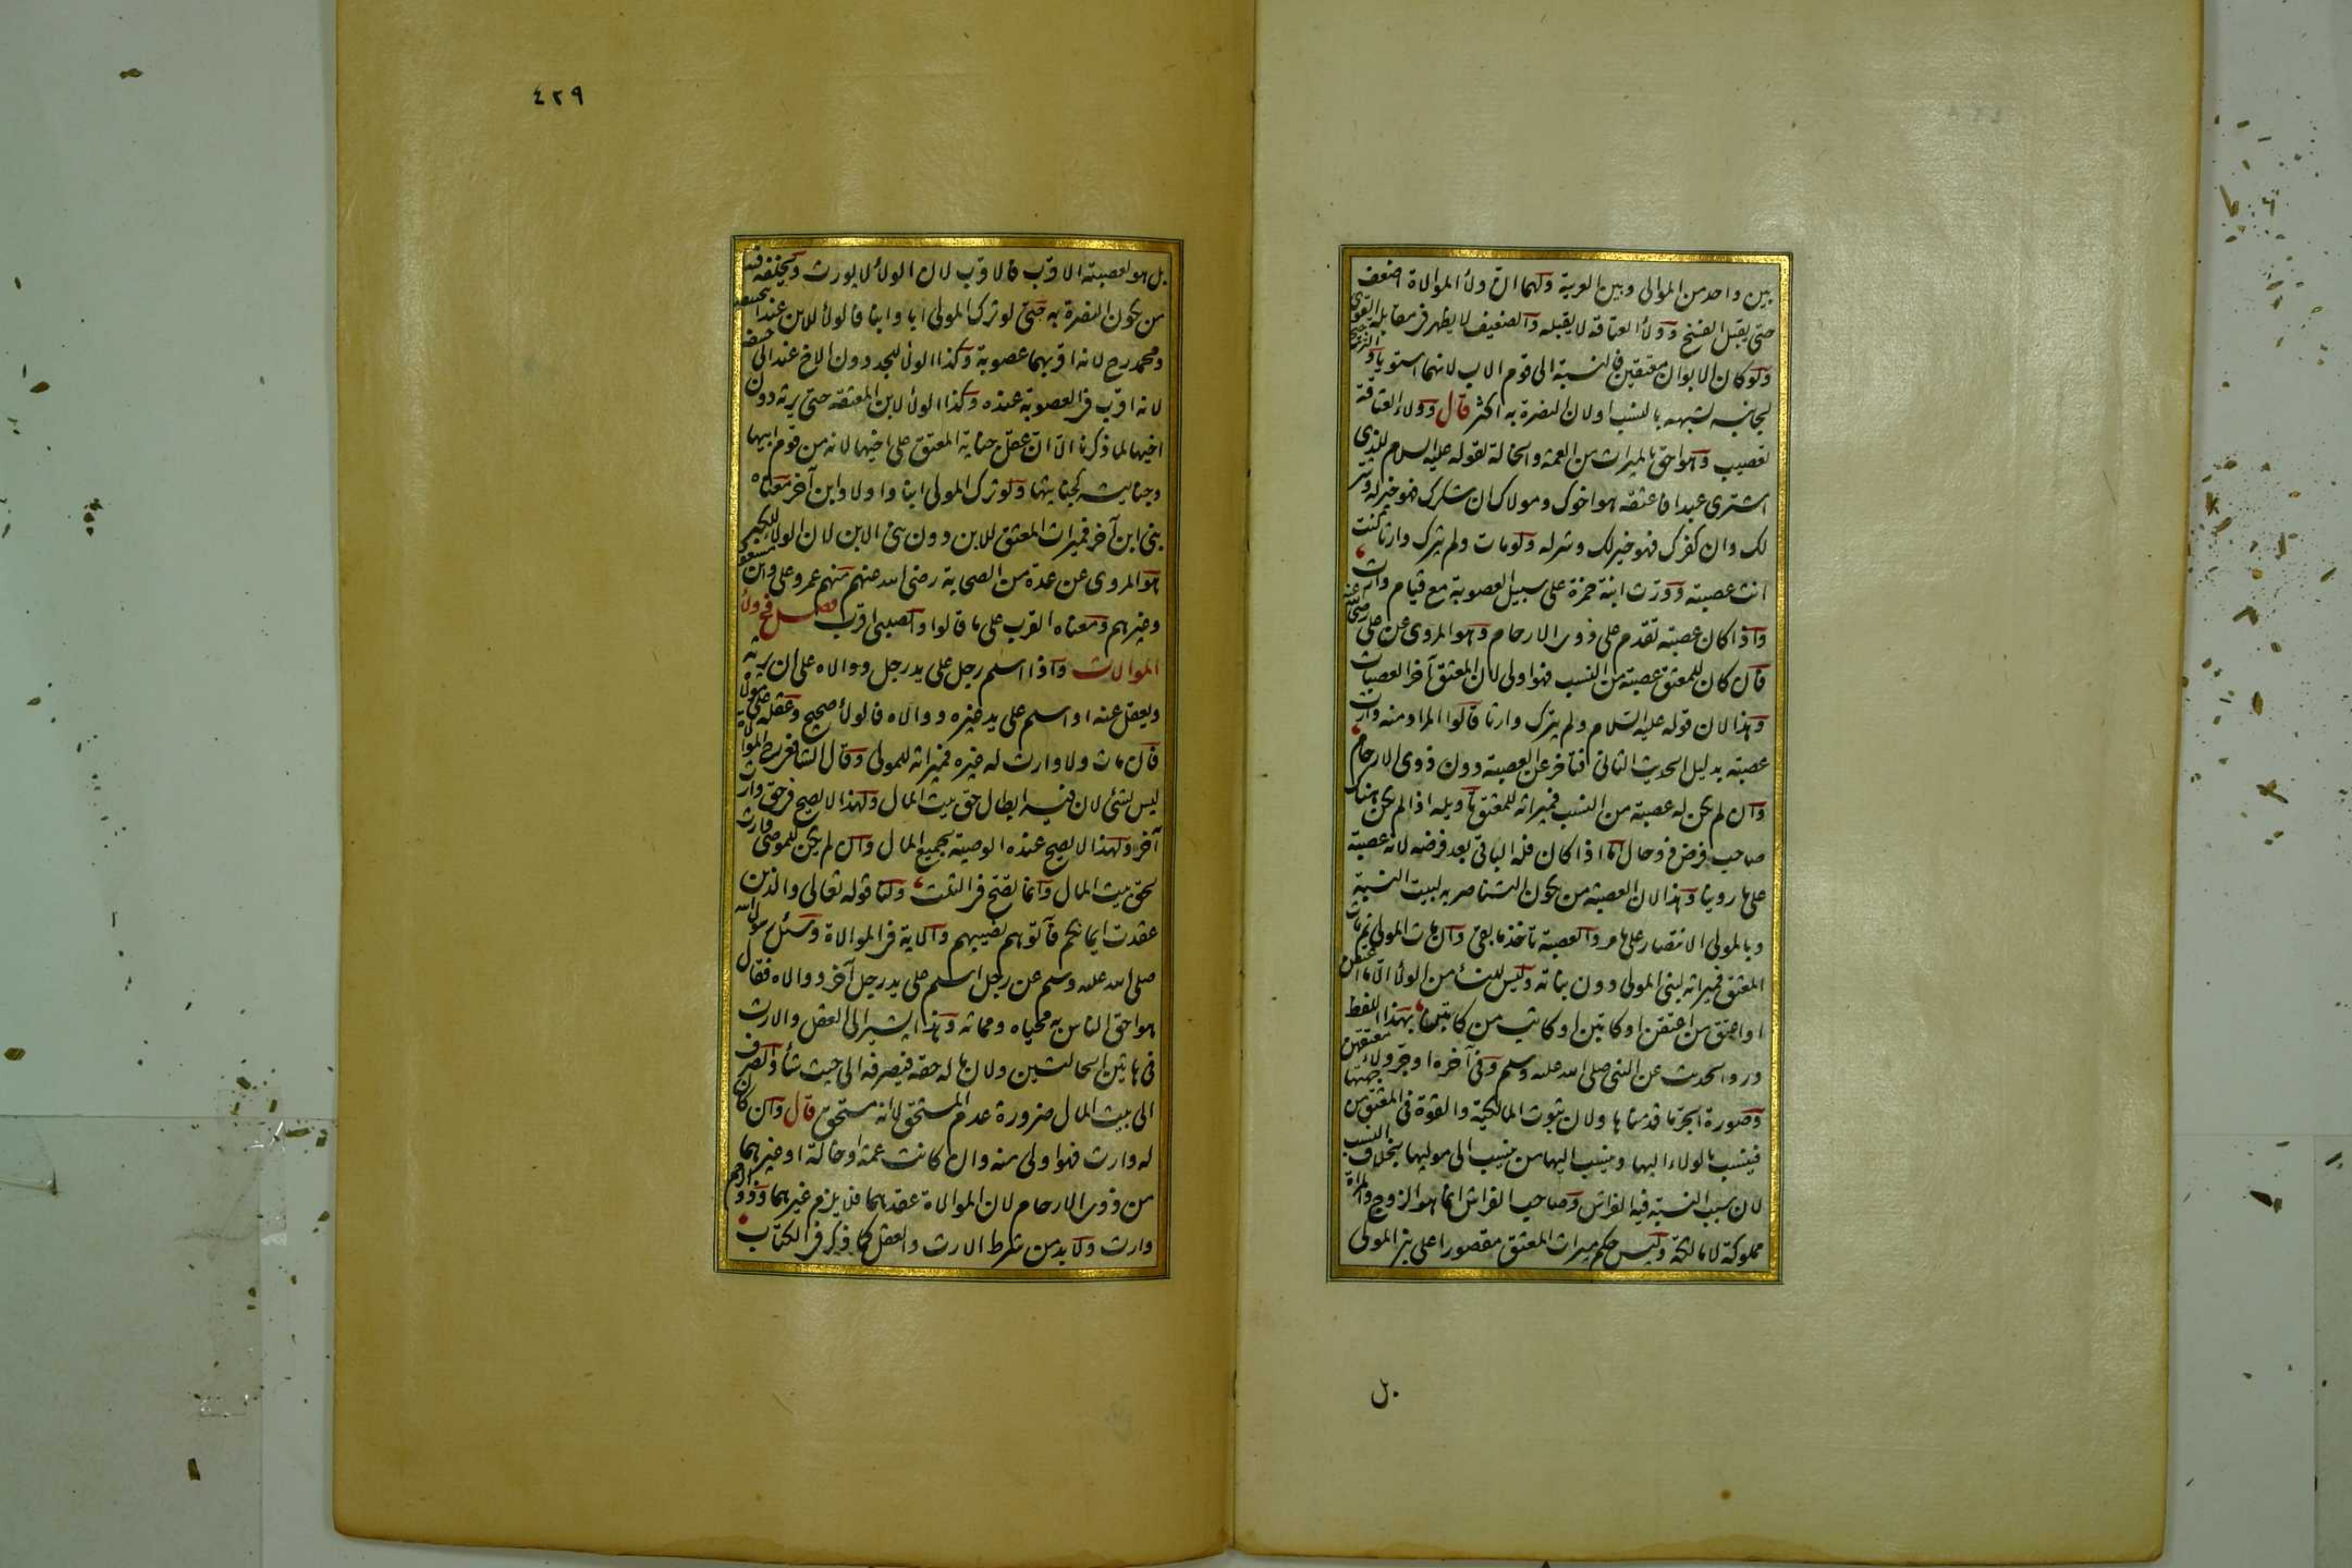 بين واحد من الموالى وبين العربية ولهما ان ولاء الموالاة اضعف
حتى يقبل الفسخ وولاء العتاقة لا يقبله والضعيف لا يظهر فى مقابلة القوى
ولو كان الابوان معتقين فالنسبة الى قوم الاب لانهما استويا والترجيح
لجانبه لشبهه بالنسب او لان النصرة به اكثر قال وولاء العتاقة
تعصيب وهو احق بالميراث من العمة والخالة لقوله عليه السلام للذى
اشترى عبدا فاعتقه هو اخوك ومولاك ان شكرك فهو خير له وشر
لك وان كفرك فهو خير لك وشر له ولو مات ولم يترك وارثا كنت
انت عصبته وورث ابنة حمزة على سبيل العصوبة مع قيام وارث
واذا كان عصبة تقدم على ذوى الارحام وهو المروى عن على رضى الله عنه
فان كان للمعتق عصبة من النسب فهو اولى لان المعتق آخر العصبات
وهذا لان قوله عليه السلام ولم يترك وارثا قالوا المراد منه وارث
عصبة بدليل الحديث الثانى فتاخر عن العصبة دون ذوى الارحام
وان لم يكن له عصبة من النسب فميراثه للمعتق تاويله اذا لم يكن هناك
صاحب فرض ذو حال اما اذا كان فله الباقى بعد فرضه لانه عصبة
على ما روينا وهذا لان العصبة من يكون التناصر به لبيت النسبة
وبالموالى الانتصار على ما مر والعصبة تاخذ ما بقى وان مات المولى ثم مات
المعتق فميراثه لبنى المولى دون بناته وليس للنساء من الولاء الا ما اعتقن
او اعتق من اعتقن او كاتبن او كاتب من كاتبن بهذا اللفظ
ورد الحديث عن النبى صلى الله عليه وسلم وفى آخره او جر ولاء معتقهن
وصورة الجر ما قدمناها ولان ثبوت المالكية والقوة فى المعتق من جهتها
فينسب بالولاء اليها وينسب اليها من ينسب الى مولاها بخلاف النسب
لان سبب النسبة فيه الفراش وصاحب الفراش انما هو الزوج والمراة
مملوكة لا مالكة وليس حكم ميراث المعتق مقصورا على بنى المولى
بل
٤٢٩
بل هو لعصبته الاقرب فالاقرب لان الولاء لا يورث ويخلفه فيه
من يكون النصرة به حتى لو ترك المولى ابا وابنا فالولاء للابن عند ابى حنيفة
ومحمد رح لانه اقربهما عصوبة وكذا الولاء للجد دون الاخ عند ابى حنيفة
لانه اقرب فى العصوبة عنده وكذا الولاء لابن المعتقة حتى يرثه دون
اخيها لما ذكرنا الا ان عقل جناية المعتق على اخيها لانه من قوم ابيها
وجنايته كجنايتها ولو ترك المولى ابنا واولاد ابن آخر معناه
بنى ابن آخر فميراث المعتق للابن دون بنى الابن لان الولاء للكبر
هو المروى عن عدة من الصحابة رضى الله عنهم منهم عمر وعلى وابن مسعود
وغيرهم ومعناه القرب على ما قالوا والصلبى اقرب فصل فى ولاء
الموالات واذا اسلم رجل على يد رجل ووالاه على ان يرثه
ويعقل عنه او اسلم على يد غيره ووالاه فالولاء صحيح وعقله على مولاه
فان مات ولا وارث له غيره فميراثه للمولى وقال الشافعى رح الموالاة
ليس بشئ لان فيه ابطال حق بيت المال ولهذا لا يصح فى حق وارث
آخر ولهذا لا يصح عنده الوصية بجميع المال وان لم يكن للموصى وارث
لحق بيت المال وانما يصح فى الثلث ولنا قوله تعالى والذين
عقدت ايمانكم فآتوهم نصيبهم والآية فى الموالاة وسئل رسول الله
صلى الله عليه وسلم عن رجل اسلم على يد رجل آخر ووالاه فقال
هو احق الناس به محياه ومماته وهذا يشير الى العقل والارث
فى هاتين الحالتين ولان ماله حقه فيصرفه الى حيث شاء والصرف
الى بيت المال ضرورة عدم المستحق لا انه مستحق قال وان كان
له وارث فهو اولى منه وان كانت عمة او خالة او غيرهما
من ذوى الارحام لان الموالاة عقدهما فلا يلزم غيرهما وذوو الارحام
وارث ولا بد من شرط الارث والعقل كما ذكر فى الكتاب